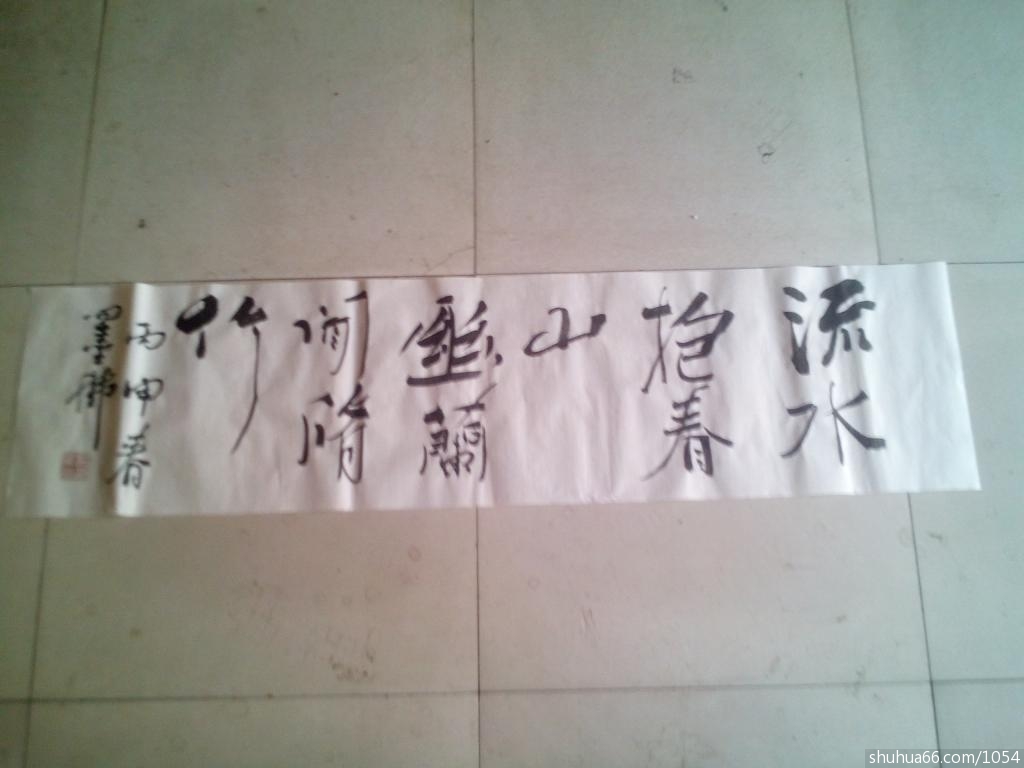 流水
抱春
山
幽蘭
間脩
竹
丙申春
shuhua66.com/1054